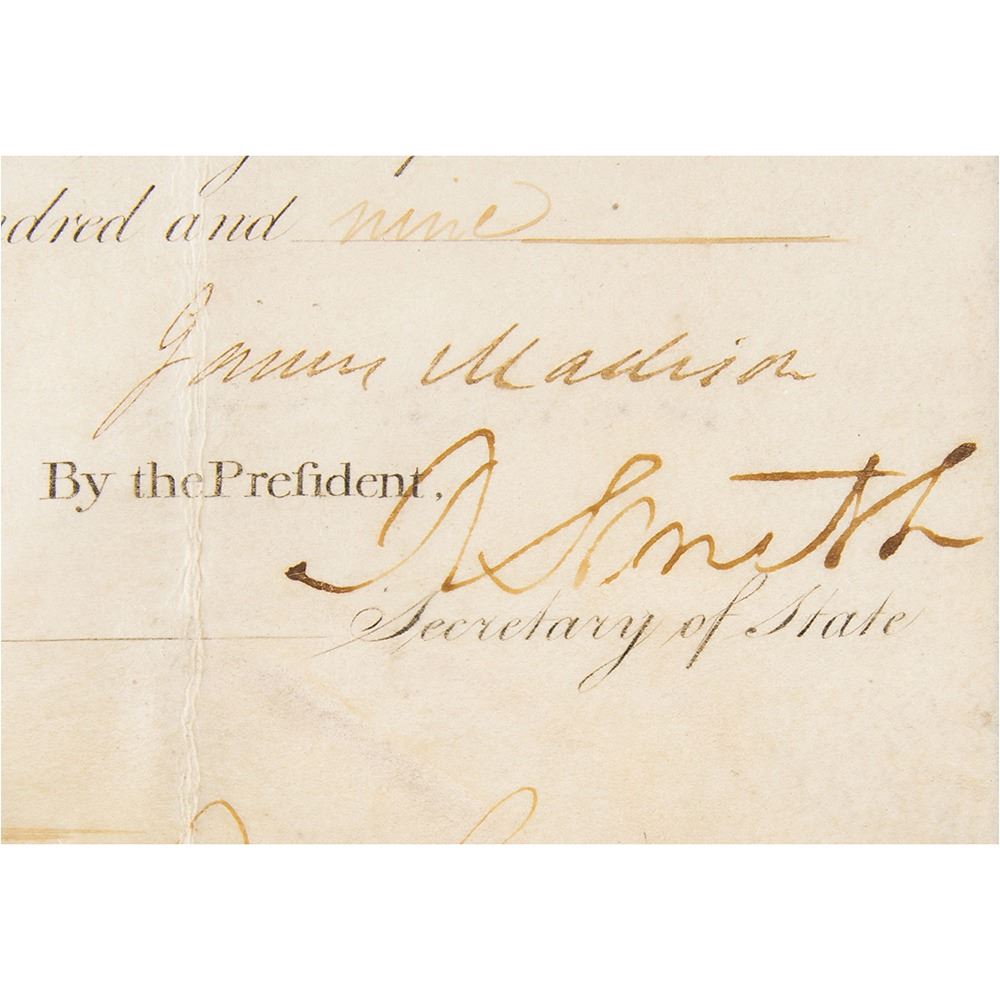 ndred and nine
James Madison
By the Preſident,
R Smith
Secretary of State